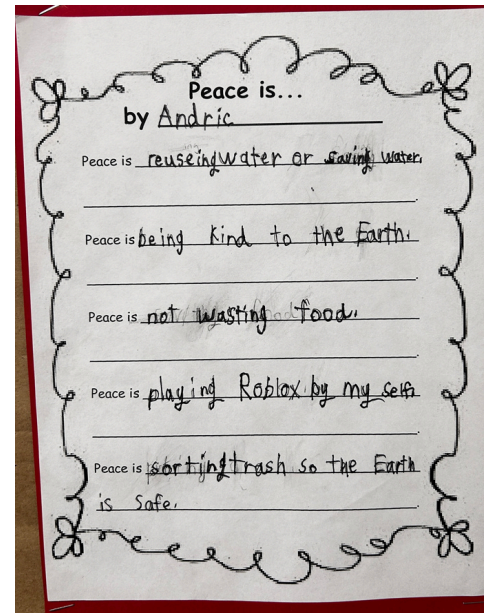 Peace is...
by Andric
Peace is reuseing water or saving water.
Peace is being kind to the Earth.
Peace is not wasting food.
Peace is playing Roblox by my self.
Peace is sorting trash so the Earth
is safe.